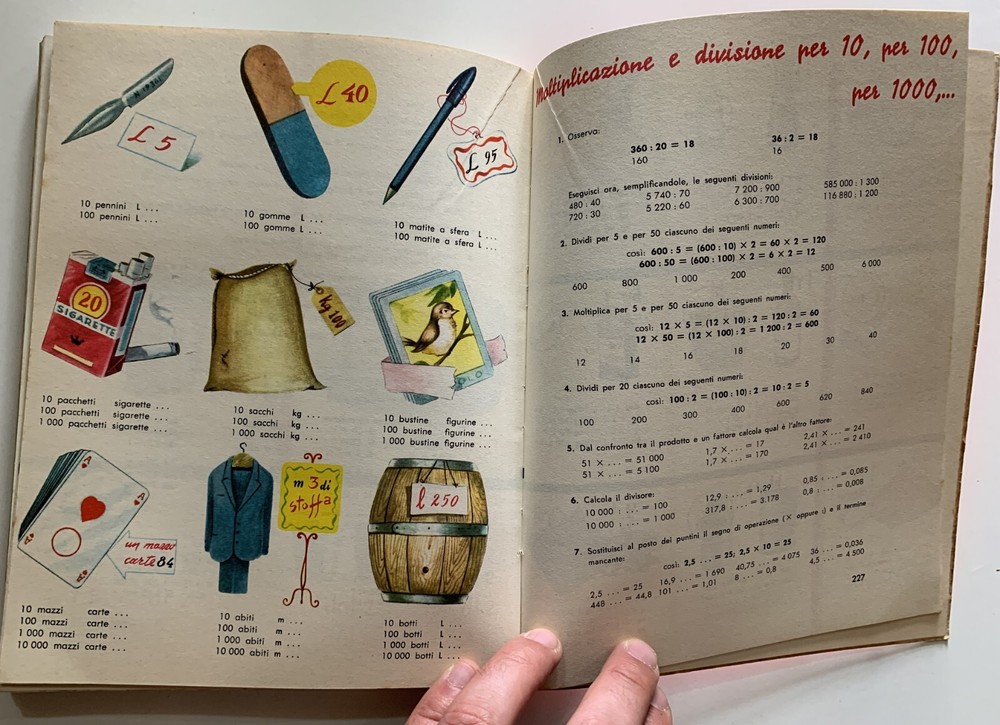 L 5
L 40
L 95
10 pennini L ...
100 pennini L ...
10 gomme L ...
100 gomme L ...
10 matite a sfera L ...
100 matite a sfera L ...
20
SIGARETTE
Kg 100
10 pacchetti sigarette ...
100 pacchetti sigarette ...
1 000 pacchetti sigarette ...
10 sacchi kg ...
100 sacchi kg ...
1 000 sacchi kg ...
10 bustine figurine ...
100 bustine figurine ...
1 000 bustine figurine ...
un mazzo
carte 84
m 3 di
stoffa
l 250
10 mazzi carte ...
100 mazzi carte ...
1 000 mazzi carte ...
10 000 mazzi carte ...
10 abiti m ...
100 abiti m ...
1 000 abiti m ...
10 000 abiti m ...
10 botti l ...
100 botti l ...
1 000 botti l ...
10 000 botti l ...
Moltiplicazione e divisione per 10, per 100,
per 1000,...
1. Osserva:
360 : 20 = 18 36 : 2 = 18
160 16
Eseguisci ora, semplificandole, le seguenti divisioni:
480 : 40 5 740 : 70 7 200 : 900 585 000 : 1 300
720 : 30 5 220 : 60 6 300 : 700 116 880 : 1 200
2. Dividi per 5 e per 50 ciascuno dei seguenti numeri:
così: 600 : 5 = (600 : 10) × 2 = 60 × 2 = 120
600 : 50 = (600 : 100) × 2 = 6 × 2 = 12
600 800 1 000 200 400 500 6 000
3. Moltiplica per 5 e per 50 ciascuno dei seguenti numeri:
così: 12 × 5 = (12 × 10) : 2 = 120 : 2 = 60
12 × 50 = (12 × 100) : 2 = 1 200 : 2 = 600
12 14 16 18 20 30 40
4. Dividi per 20 ciascuno dei seguenti numeri:
così: 100 : 2 = (100 : 10) : 2 = 10 : 2 = 5
100 200 300 400 600 620 840
5. Dal confronto tra il prodotto e un fattore calcola qual è l'altro fattore:
51 × ... = 51 000 1,7 × ... = 17 2,41 × ... = 241
51 × ... = 5 100 1,7 × ... = 170 2,41 × ... = 2 410
6. Calcola il divisore:
10 000 : ... = 100 12,9 : ... = 1,29 0,85 : ... = 0,085
10 000 : ... = 1 000 317,8 : ... = 3,178 0,8 : ... = 0,008
7. Sostituisci al posto dei puntini il segno di operazione (× oppure :) e il termine
mancante:
così: 2,5 ... = 25; 2,5 × 10 = 25
2,5 ... = 25 16,9 ... = 1 690 40,75 ... = 4 075 36 ... = 0,036
448 ... = 44,8 101 ... = 1,01 8 ... = 0,8 4,5 ... = 4 500
227